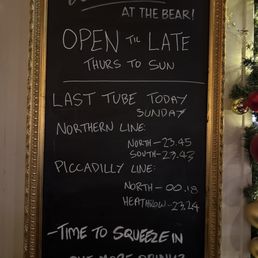 AT THE BEAR!
OPEN TIL LATE
THURS TO SUN
LAST TUBE TODAY
SUNDAY
NORTHERN LINE:
NORTH - 23.45
SOUTH - 23.43
PICCADILLY LINE:
NORTH - 00.18
HEATHROW - 23.24
- TIME TO SQUEEZE IN
ONE MORE DRINK?